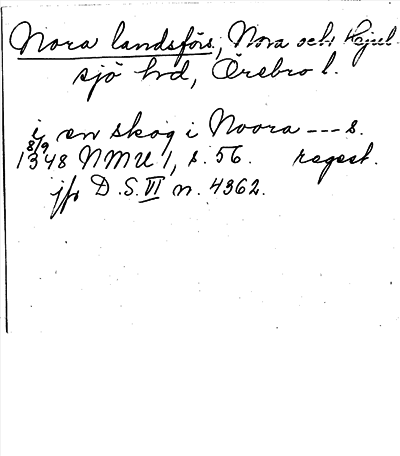 Nora landsförs., Nora och Hjul-
sjö hd, Örebro l.
i en skog i Noora --- s.
8/9
1348 NMU 1, s. 56. regest.
jfr D.S. VI n. 4362.